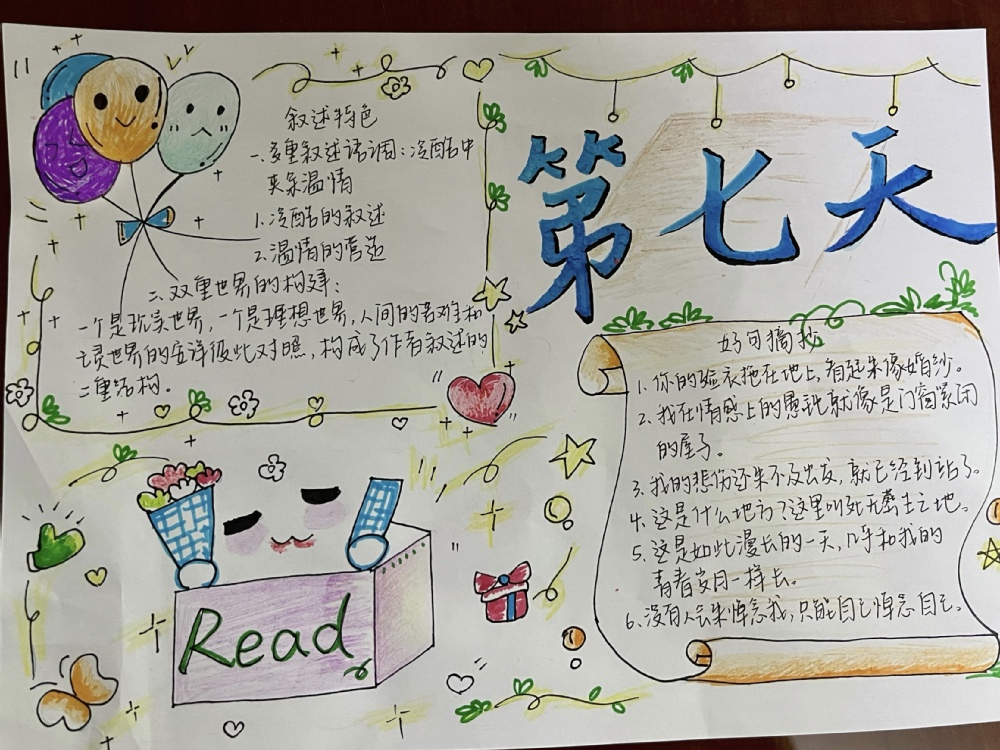 第七天
叙述特色
一、多重叙述语调：冷酷中
夹杂温情
1.冷酷的叙述
2.温情的营造
二、双重世界的构建：
一个是现实世界，一个是理想世界，人间的苦难和
亡灵世界的安详彼此对照，构成了作者叙述的
二重结构。
好句摘抄
1.你的殓衣拖在地上，看起来像婚纱。
2.我在情感上的愚钝就像是门窗紧闭
的屋子。
3.我的悲伤还来不及出发，就已经到站了。
4.这是什么地方？这里叫死无葬生之地。
5.这是如此漫长的一天，几乎和我的
青春岁月一样长。
6.没有人会来悼念我，只能自己悼念自己。
Read